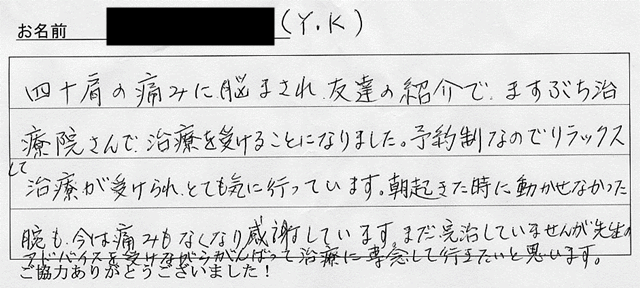 お名前 (Y.K)
四十肩の痛みに脳まされ、友達の紹介で、ますぶち治
療院さんで、治療を受けることになりました。予約制なのでリラックス
して
治療が受けられ、とても気に行っています。朝起きた時に動かせなかった
腕も、今は痛みもなくなり感謝しています。まだ完治していませんが先生の
アドバイスを受けながらがんばって治療に専念して行きたいと思います。
ご協力ありがとうございました！